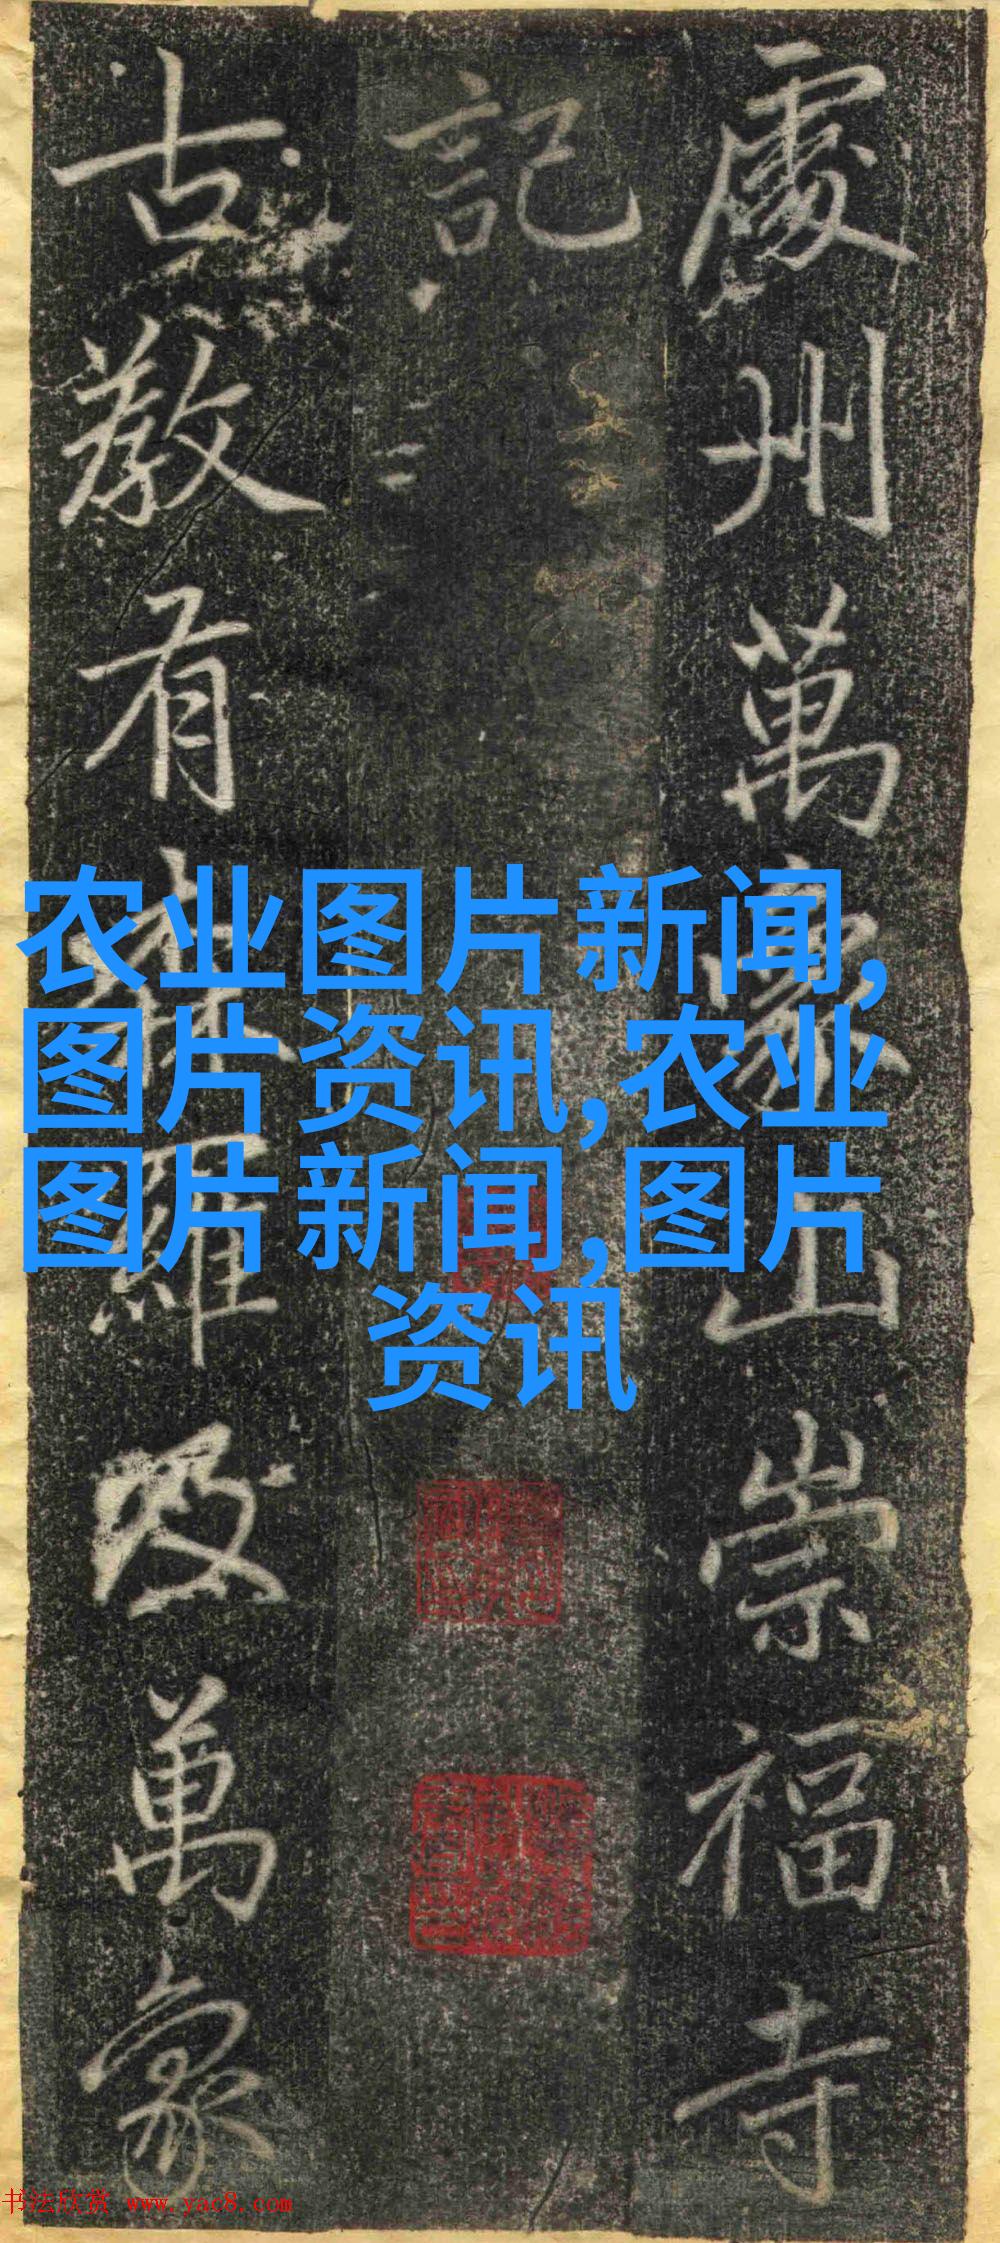 處州萬象山崇福寺
記
古教有森羅及萬象
农业图片新闻,
图片资讯,农业
图片新闻,图片
资讯
书法欣赏 www.yac8.com